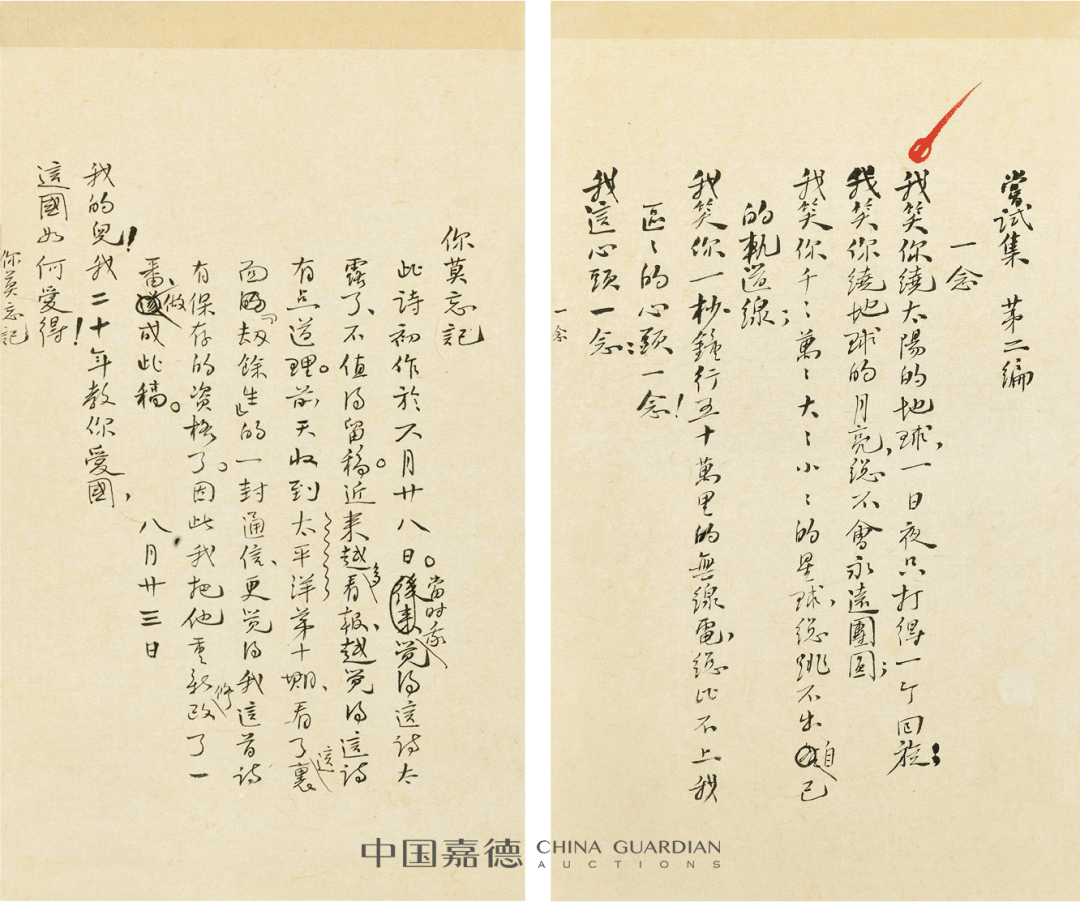 嘗試集 第二編
一念
我笑你繞太陽的地球，一日夜只打得一个回旋；
我笑你繞地球的月亮，總不會永遠團圓；
我笑你千〻萬〻大〻小〻的星球，總跳不出自己
的軌道線；
我笑你一秒鐘行五十萬里的無線電，總比不上我
區〻的心頭一念！
我這心頭一念：
一念
你莫忘記
此詩初作於六月廿八日。當时我覺得這詩太
露了、不值得留稿。近来越看報、越覺得這詩
有点道理。前天收到太平洋第十期、看了這裏
面的「劫餘生」的一封通信、更覺得我這首詩
有保存的資格了。因此我把他重新修改了一
番、做成此稿。
八月廿三日
我的兒！我二十年教你愛國、
這國如何愛得！
你莫忘記
中国嘉德 CHINA GUARDIAN
AUCTIONS